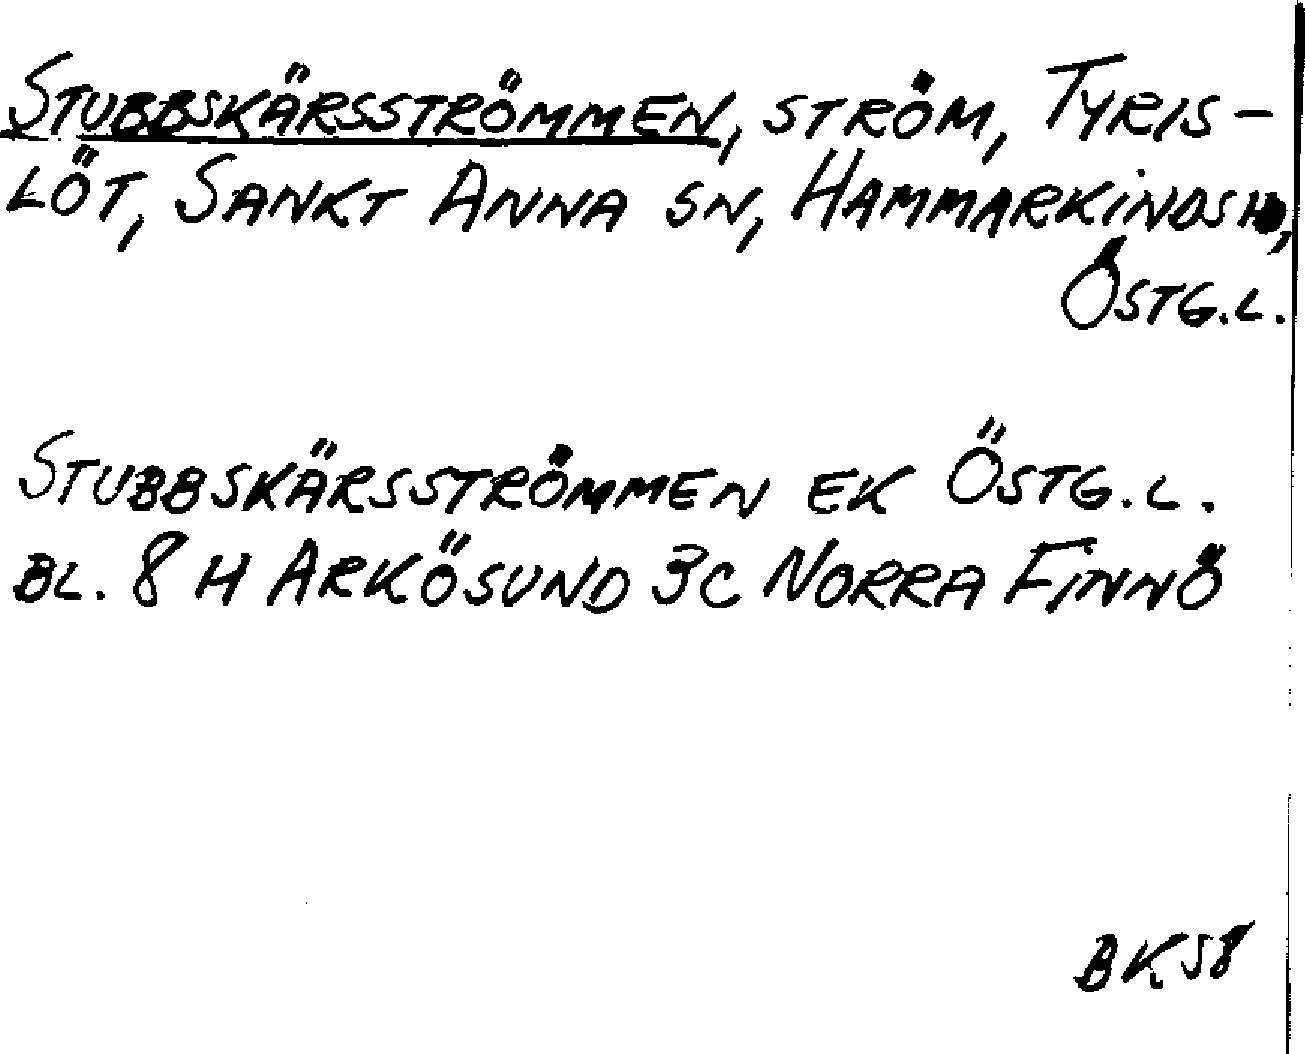 STUBBSKÄRSSTRÖMMEN, STRÖM, TYRIS-
LÖT, SANKT ANNA SN, HAMMARKINDS HD,
ÖSTG.L.
STUBBSKÄRSSTRÖMMEN EK ÖSTG.L.
BL. 8 H ARKÖSUND 3C NORRA FINNÖ
BK 58